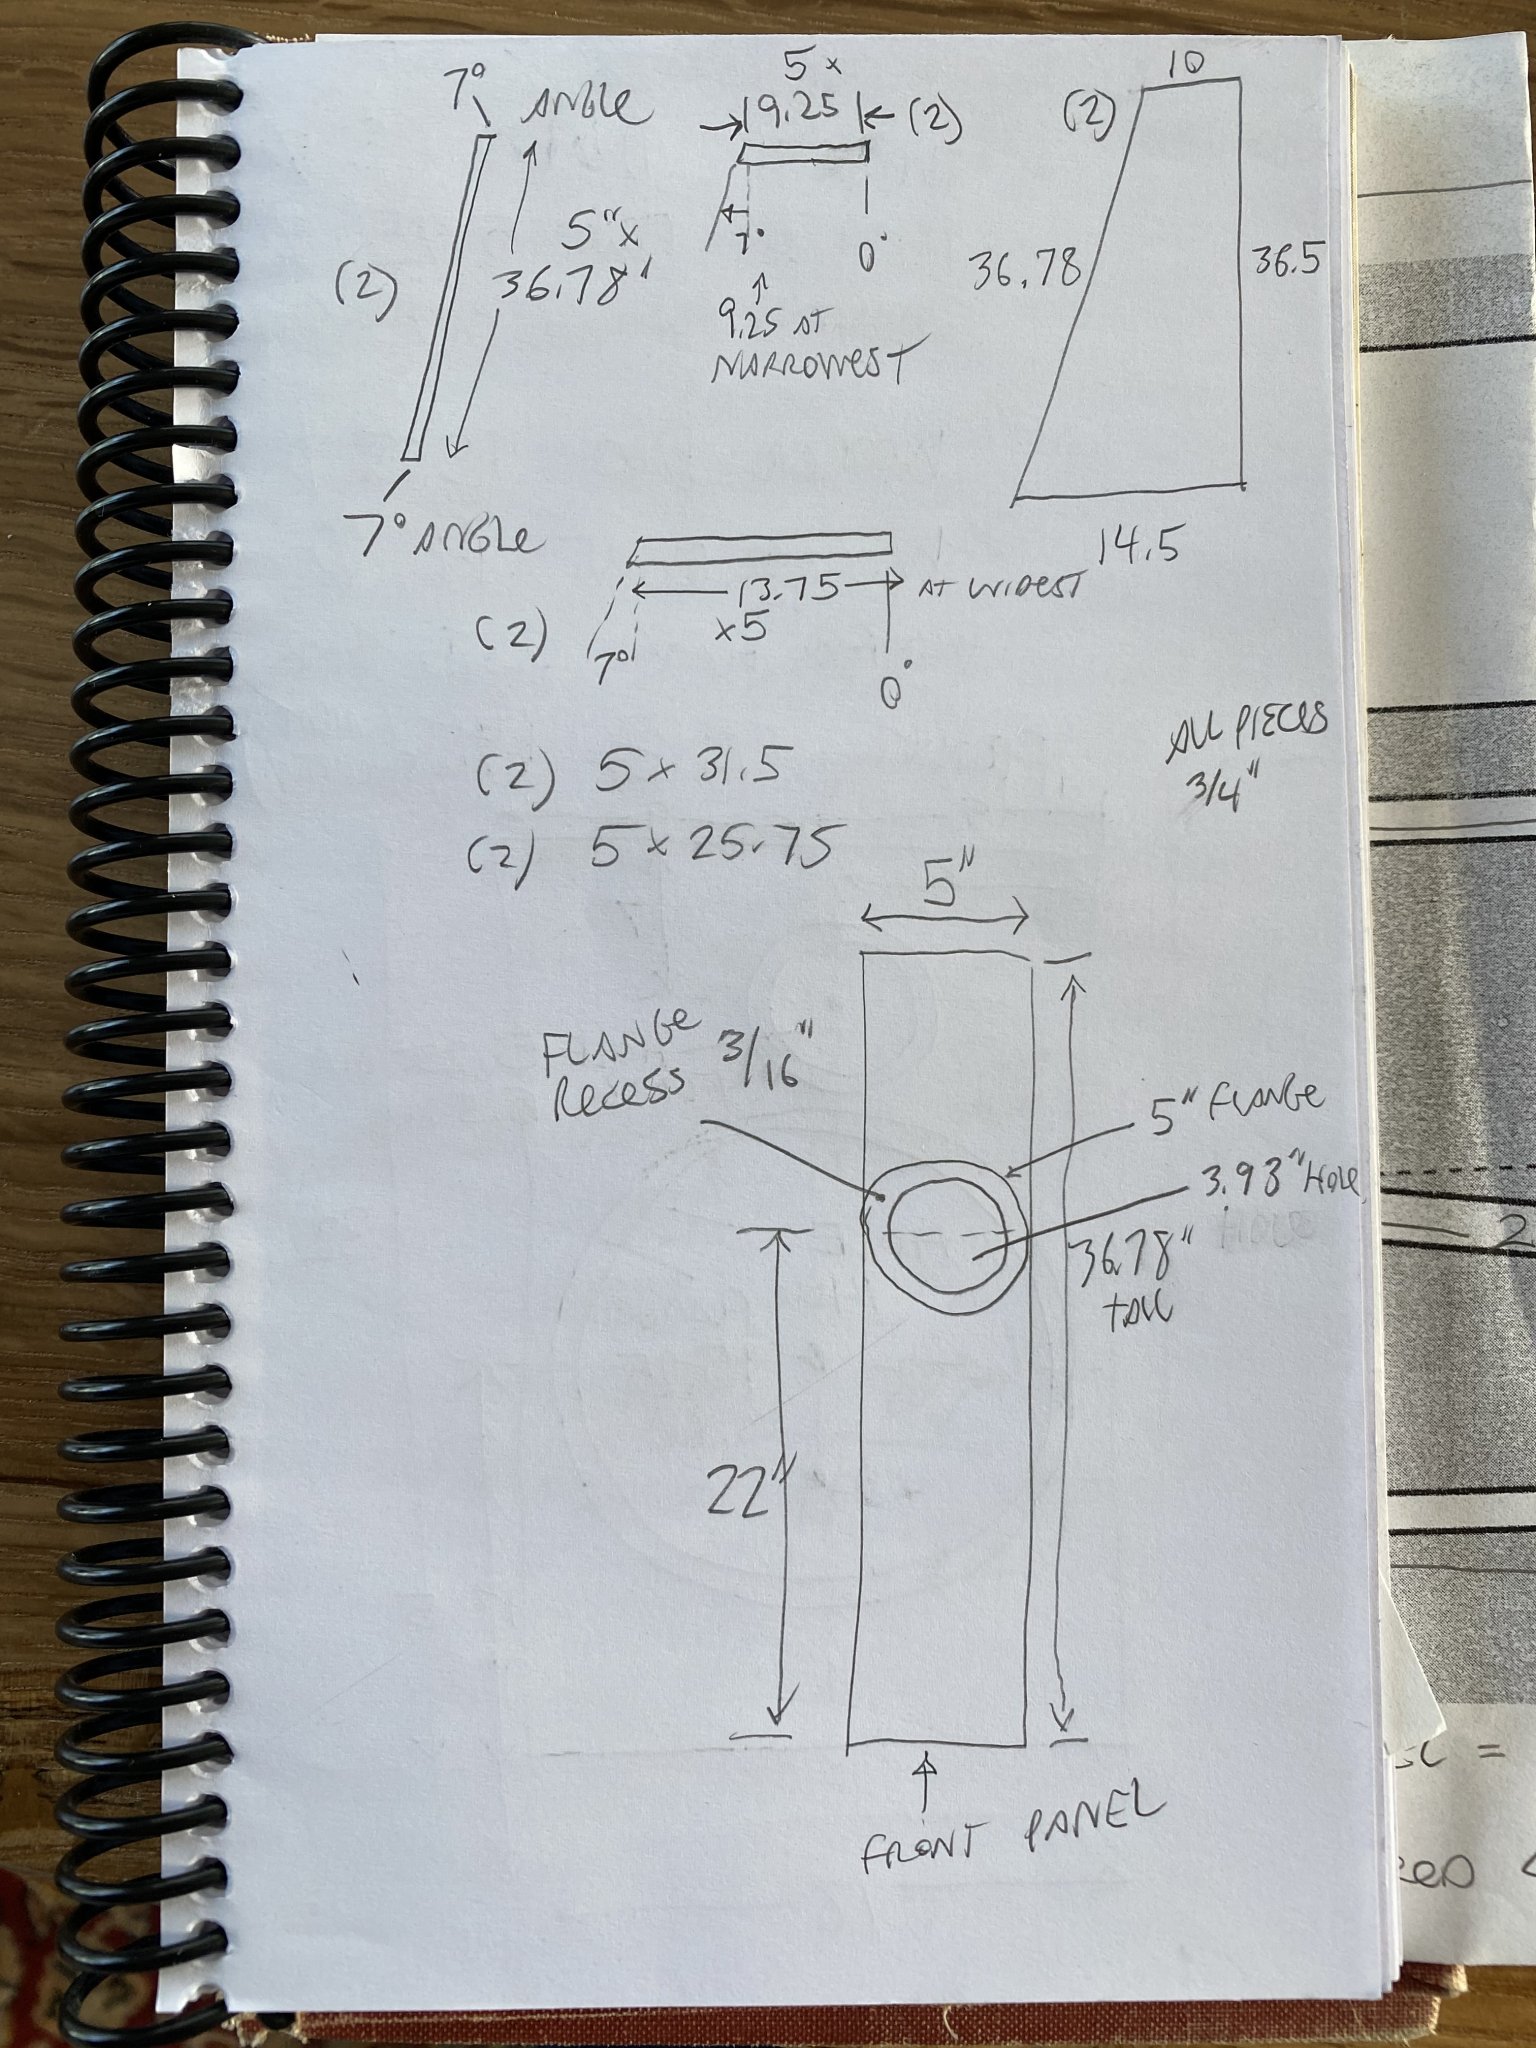 7°
ANGLE
(2)
5"x
36.78"
7° ANGLE
5 x
9.25
(2)
7°
0°
9.25 AT
NARROWEST
10
(2)
36.78
36.5
14.5
13.75
AT WIDEST
x5
(2)
7°
0°
(2) 5 x 31.5
(2) 5 x 25.75
ALL PIECES
3/4"
5"
FLANGE
RECESS
3/16"
5" FLANGE
3.93" HOLE
36.78"
TALL
22"
FRONT PANEL
2
=